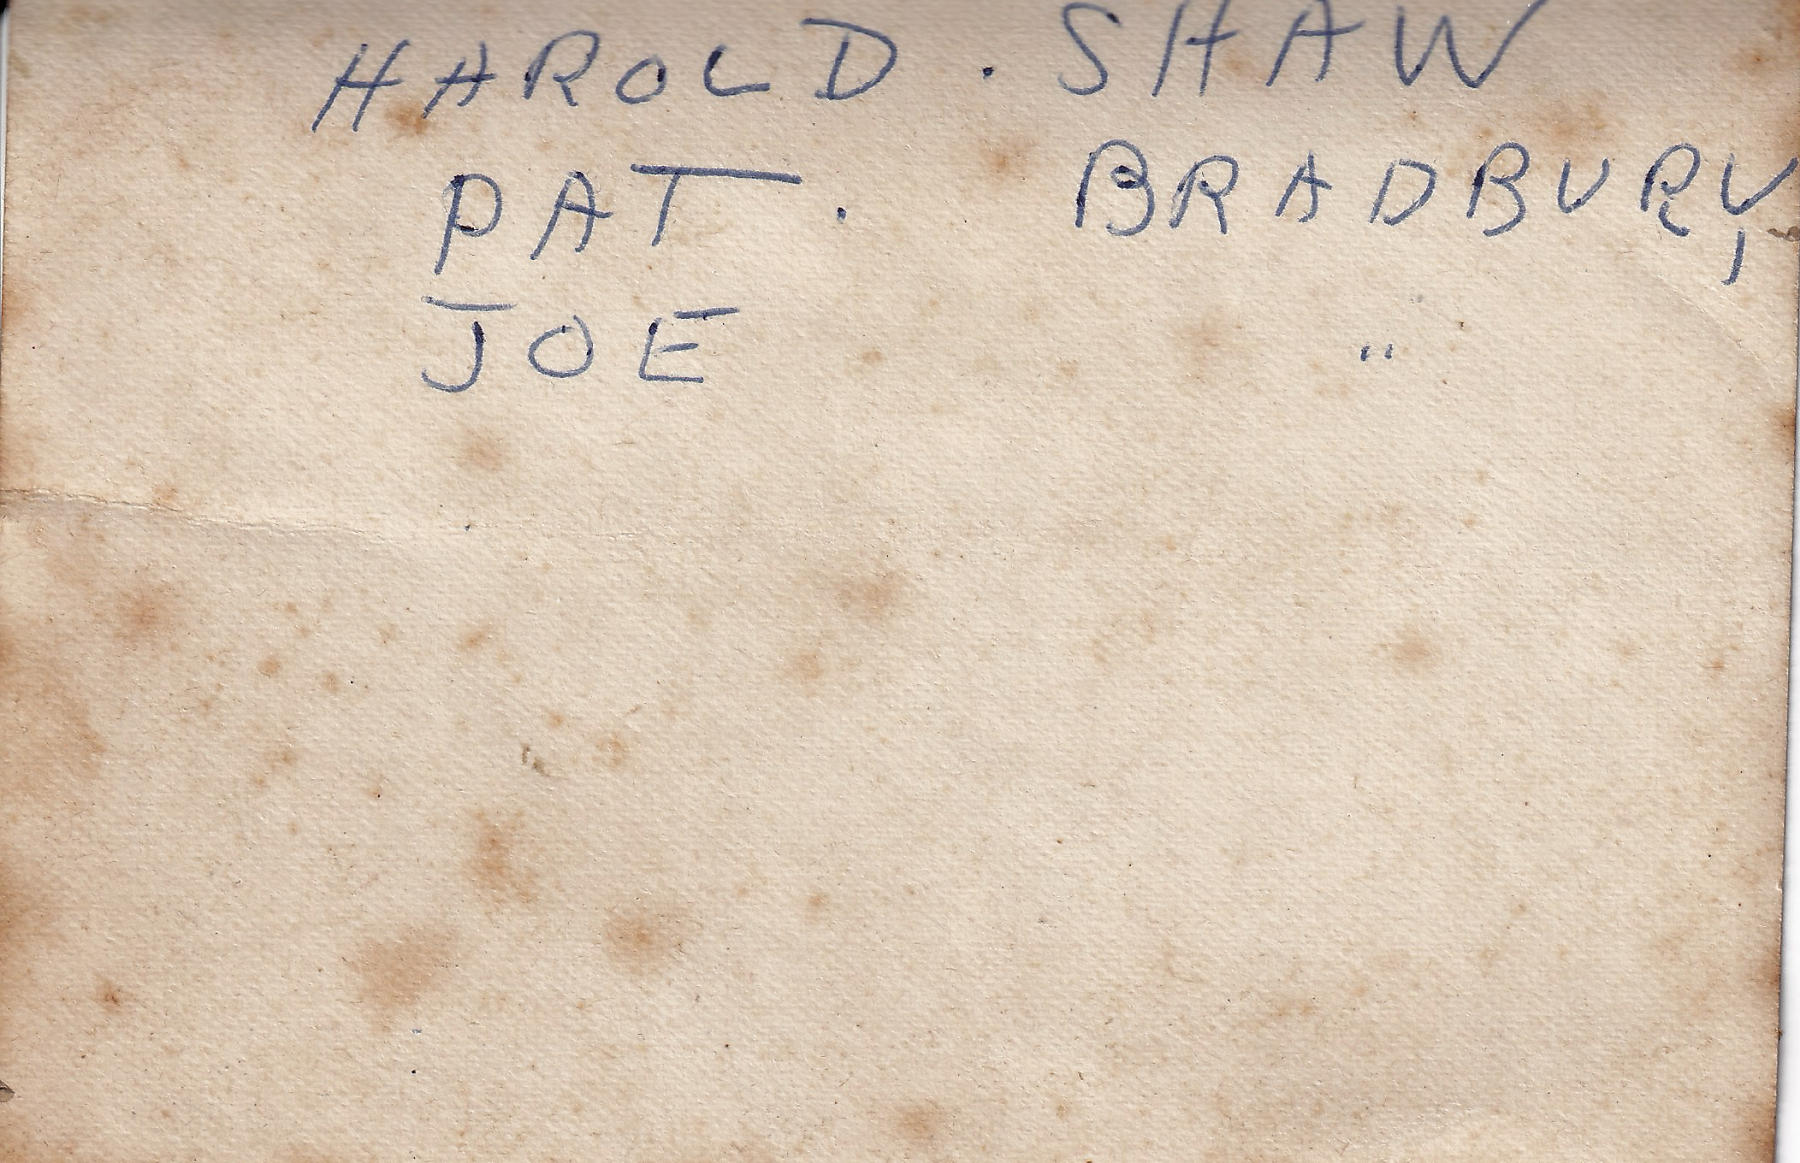 HAROLD . SHAW
PAT . BRADBURY,
JOE "